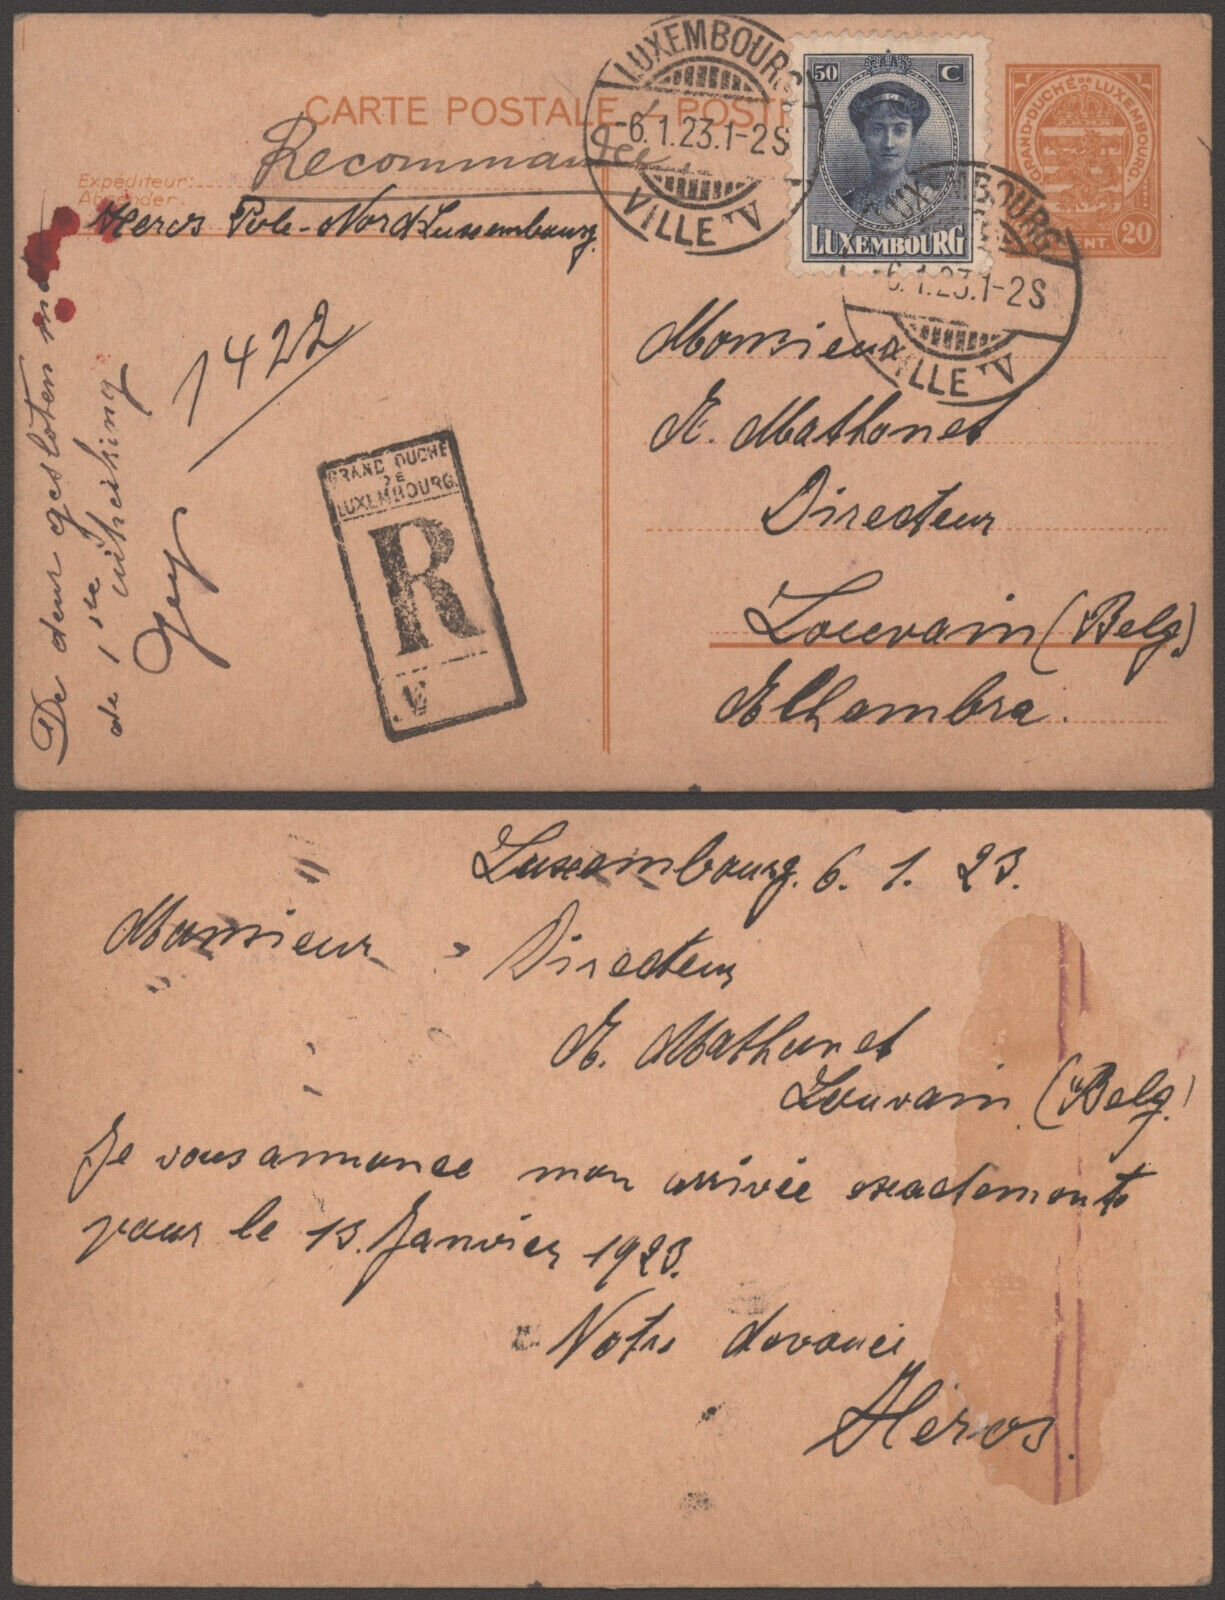 CARTE POSTALE - POST
Recommandée
Expéditeur:
Absender:
Heros Pole-Nord Luxembourg.
LUXEMBOURG
-6.1.23.1-2S
VILLE IV
50 C
LUXEMBOURG
GRAND-DUCHÉ DE LUXEMBOURG.
20 CENT. 20
LUXEMBOURG
-6.1.23.1-2S
VILLE IV
1422
GRAND DUCHÉ
DE
LUXEMBOURG.
R
De deur gesloten
de 1ste uitreiking
Monsieur
A. Mathonet
Directeur
Louvain (Belg.)
Alhambra.
Luxembourg. 6. 1. 23.
Monsieur
Directeur
A. Mathonet
Louvain (Belg.)
Je vous annonce mon arrivée exactements
pour le 13. Janvier 1923.
Votre devouéi
Heros.